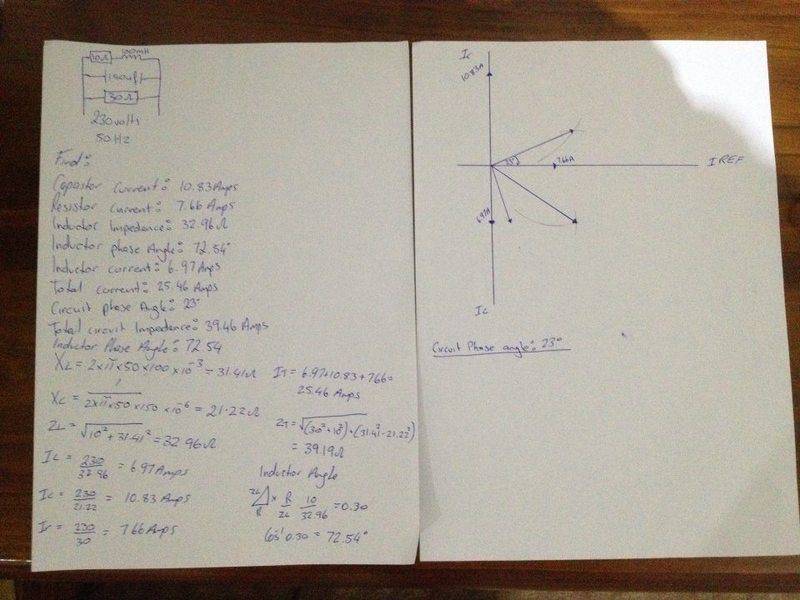 10Ω 100mH
150uf
30Ω
230volts
50Hz
Find:
Capastor Current: 10.83Amps
Resistor Current: 7.66 Amps
Inductor Impedence: 32.96Ω
Inductor phase Angle: 72.54°
Inductor current: 6.97 Amps
Total current: 25.46 Amps
Circuit phase Angle: 23°
Total circuit Impedence: 39.46 Amps
Inductor Phase Angle: 72.54
XL = 2×π×50×100×10⁻³ = 31.41Ω
XC = 1/(2×π×50×150×10⁻⁶) = 21.22Ω
ZL = √(10²+31.41²) = 32.96Ω
IL = 230/32.96 = 6.97Amps
Ic = 230/21.22 = 10.83 Amps
Ir = 230/30 = 7.66 Amps
IT = 6.97+10.83+7.66=
25.46 Amps
ZT = √(30²+10²)+(31.41²-21.22²)
= 39.19Ω
Inductor Angle
ZL × R/ZL 10/32.96 = 0.30
R
Cos⁻¹ 0.30 = 72.54°
Ic
10.83A
23°
7.66A
I REF
6.97A
IL
Circuit Phase angle: 23°